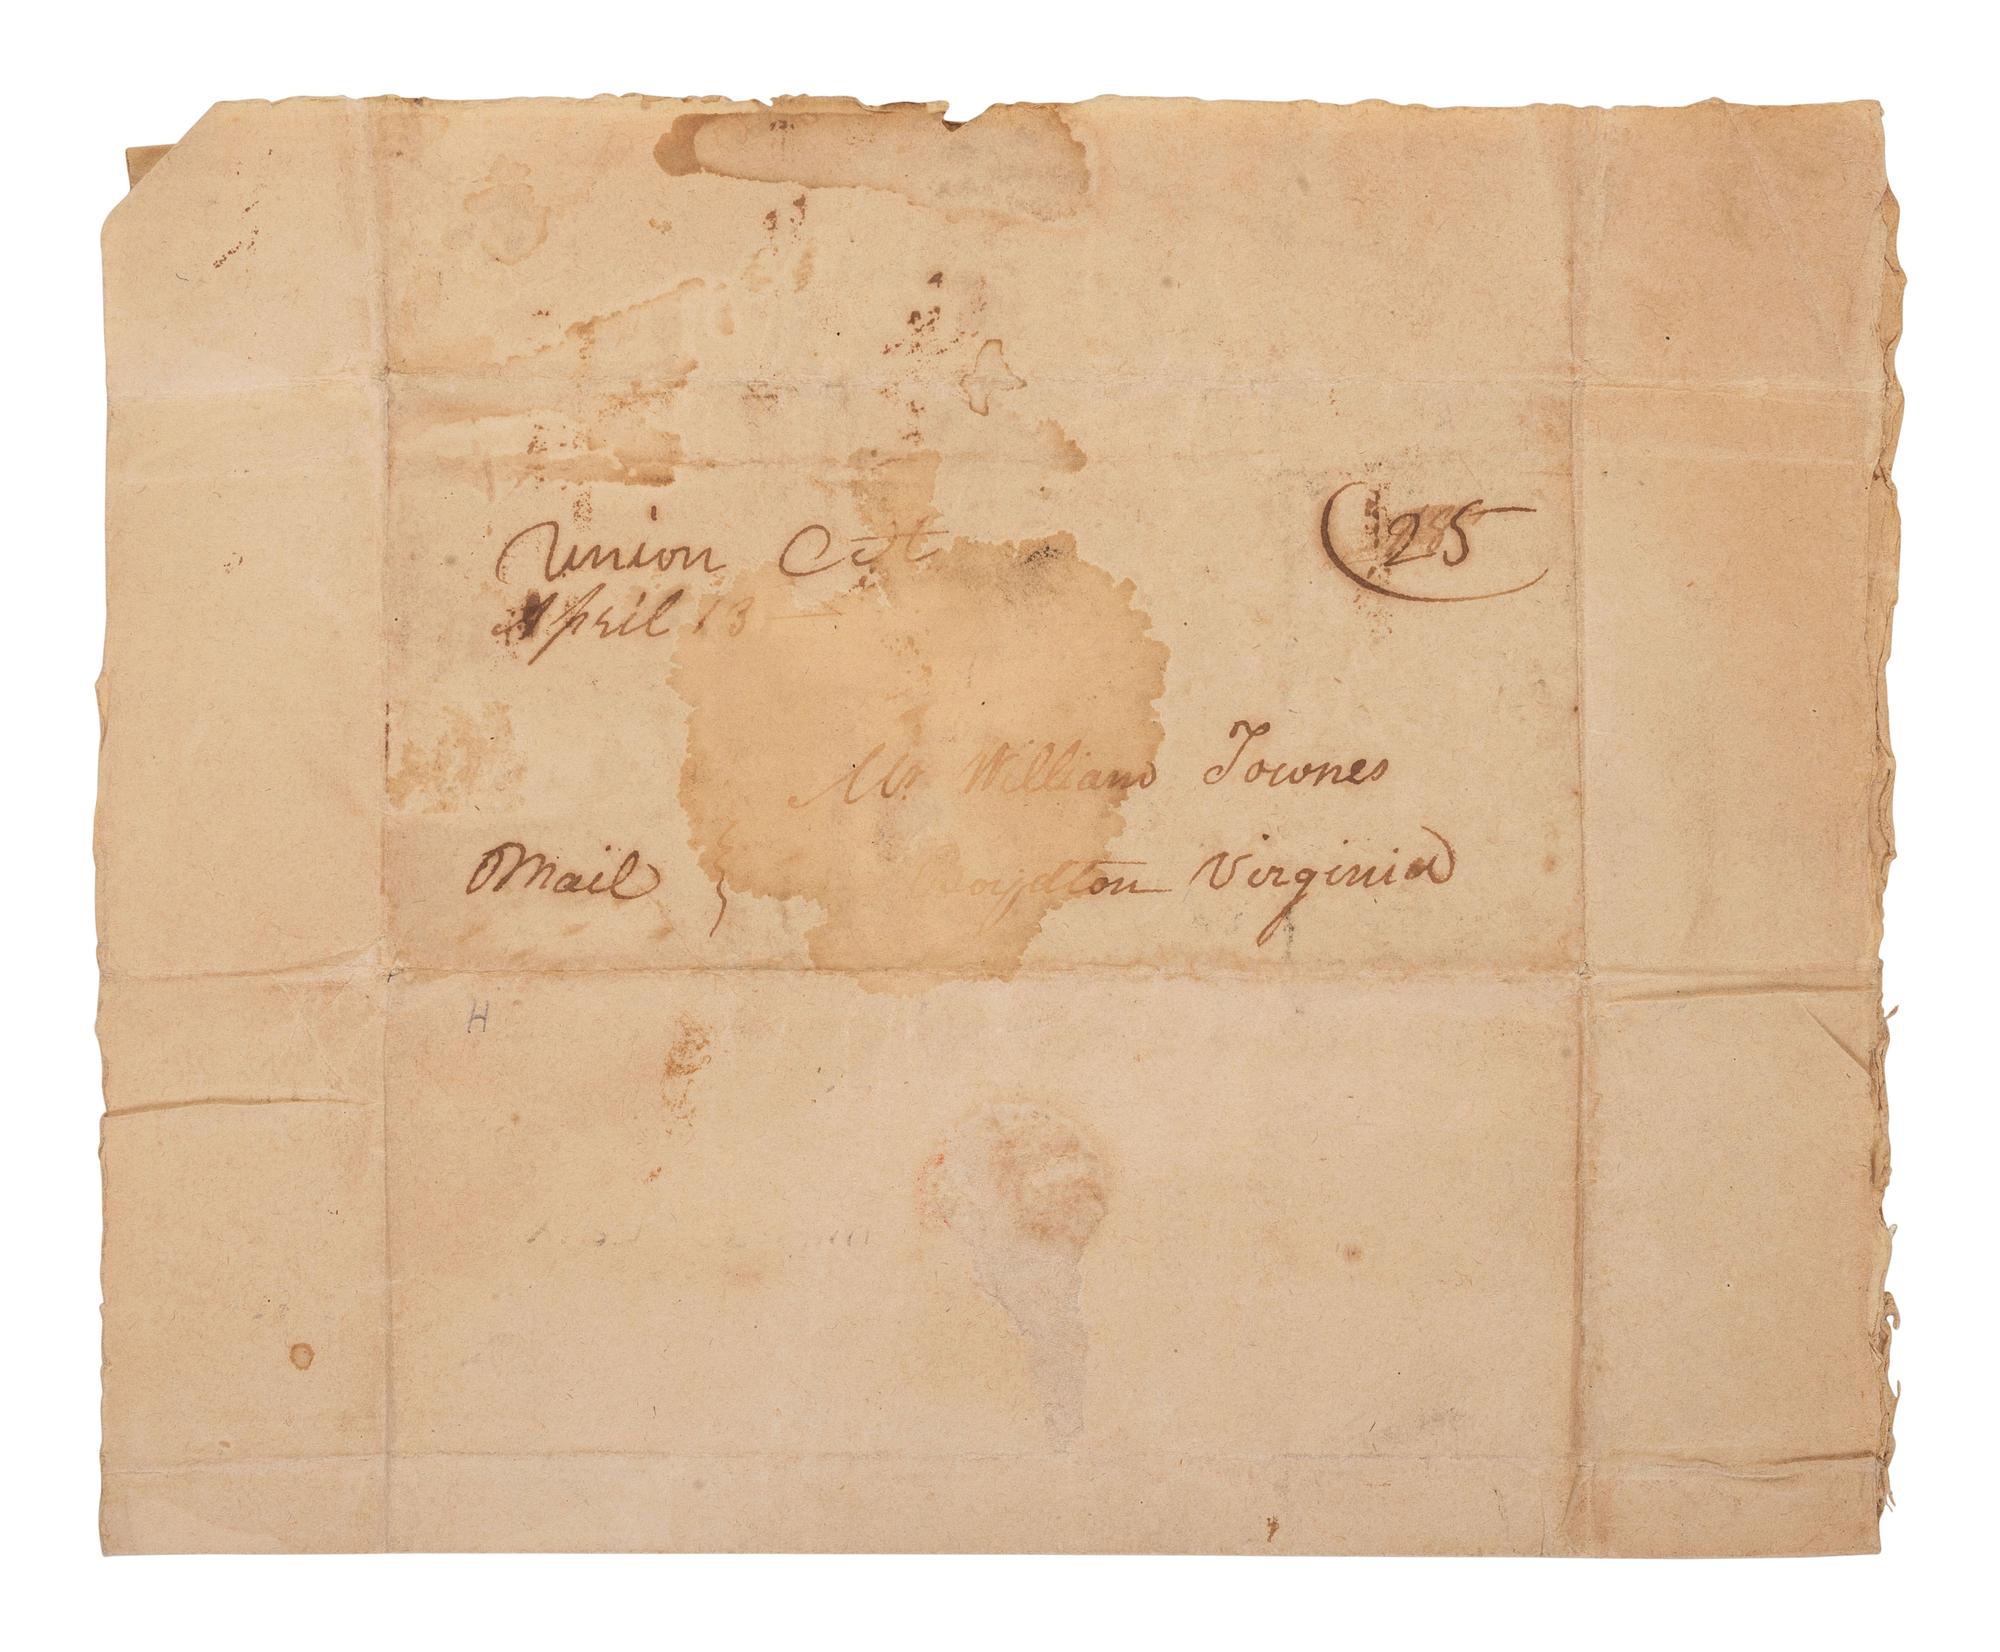 Union C.H.
25
April 13
Mr William Townes
Mail
Boydton Virginia
H